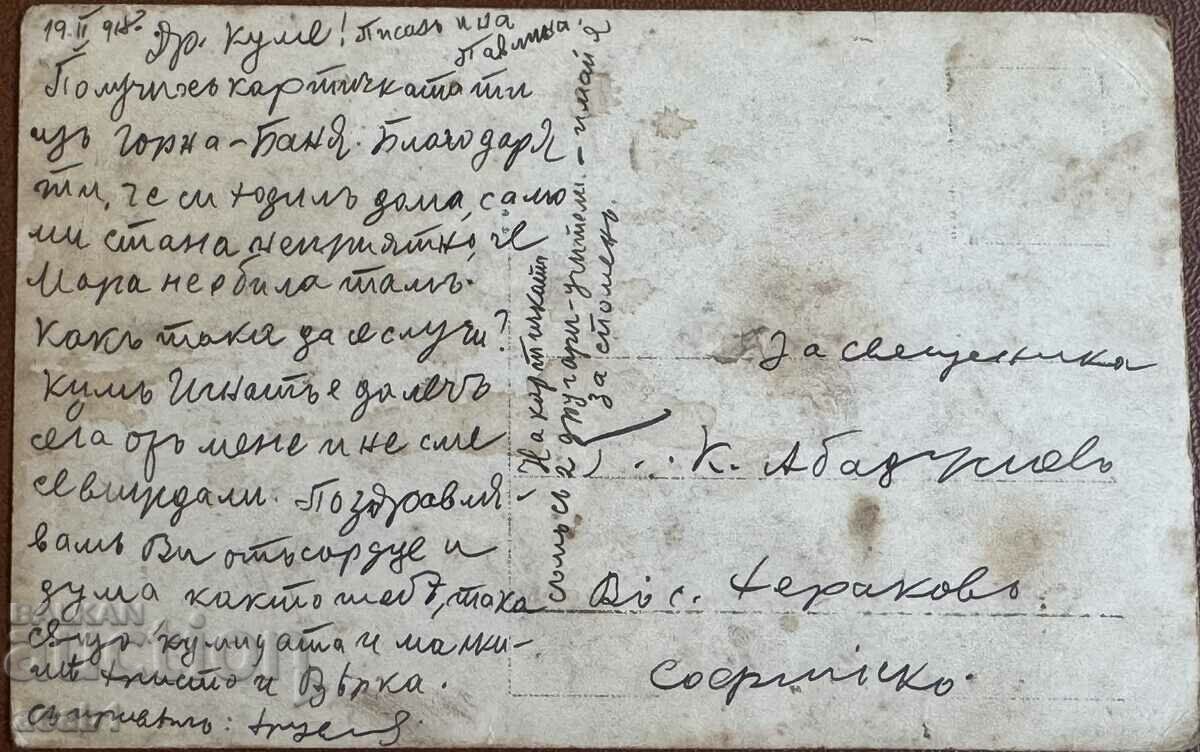 19.II 918?
Др. Куме! Писахъ и на
Павлина.
Получихъ картичката ти
изъ Горна-Баня. Благодаря
ти, че си ходилъ дома, само
ми стана неприятно, че
Мара не била тамъ.
Какъ така да се случи?
Кумъ Игнатъ е далечъ
сега отъ мене и не сме
се виждали. Поздравля-
вамъ Ви отъ сърдце и
дума както тебѣ, така
също кумицата и малки-
тѣ Христо и Вѣрка.
Съ приветъ:
На картичката
съмъ съ 2 другари-учители. - имай я
за споменъ.
За свещеника
К. Абаджиевъ
Въ с. Хераковъ
Софийско
BALKAN
auction